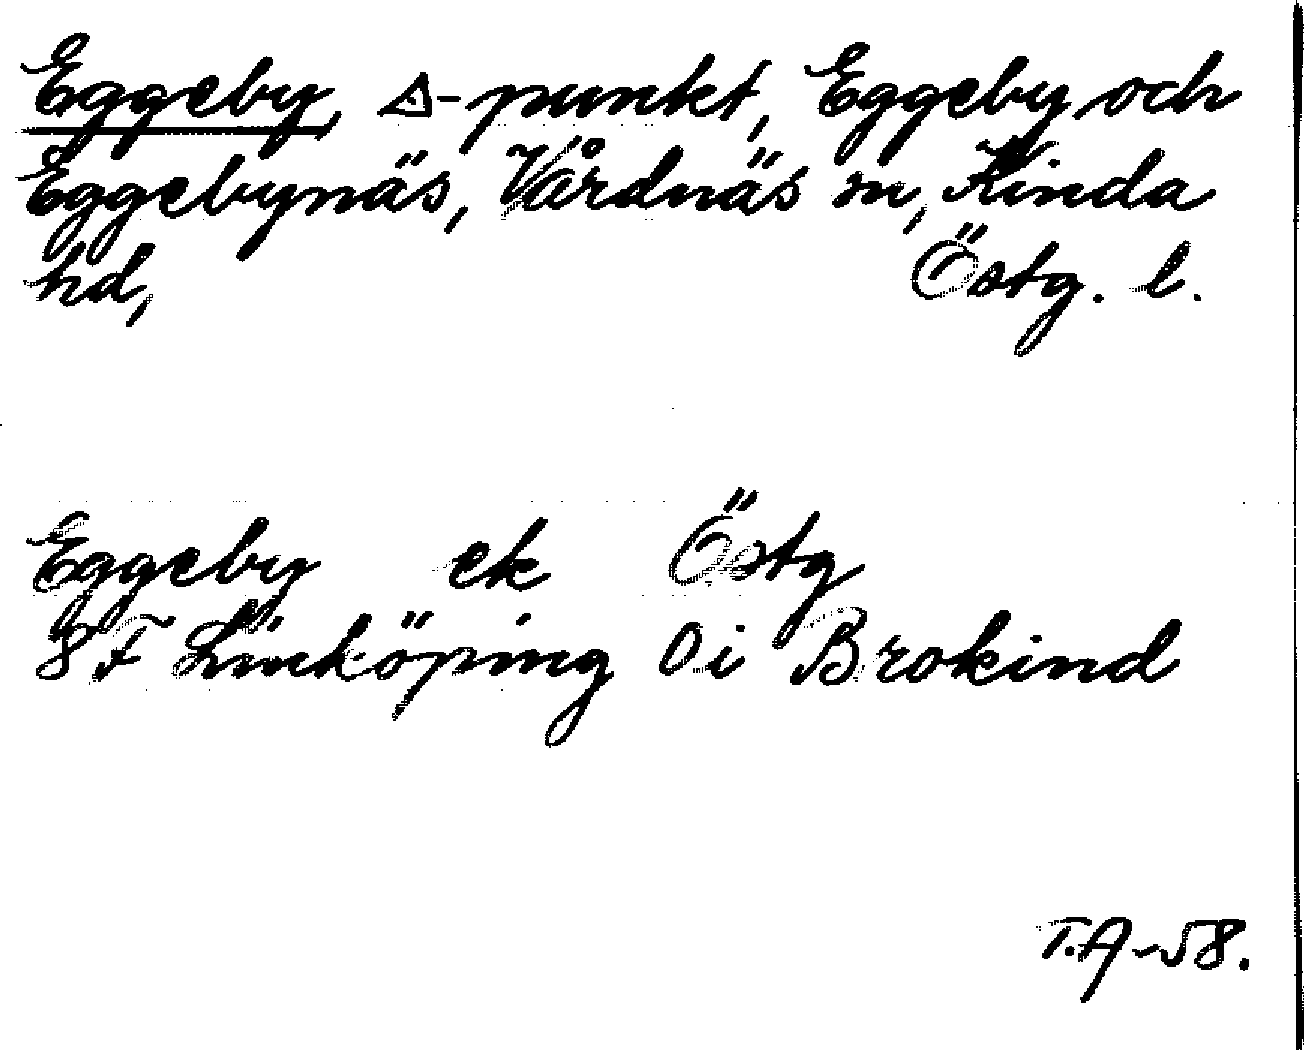 Eggeby, △-punkt, Eggeby och
Eggebynäs, Vårdnäs sn, Kinda
hd, Östg. l.
Eggeby ek Östg
8F Linköping 0i Brokind
T.A-58.